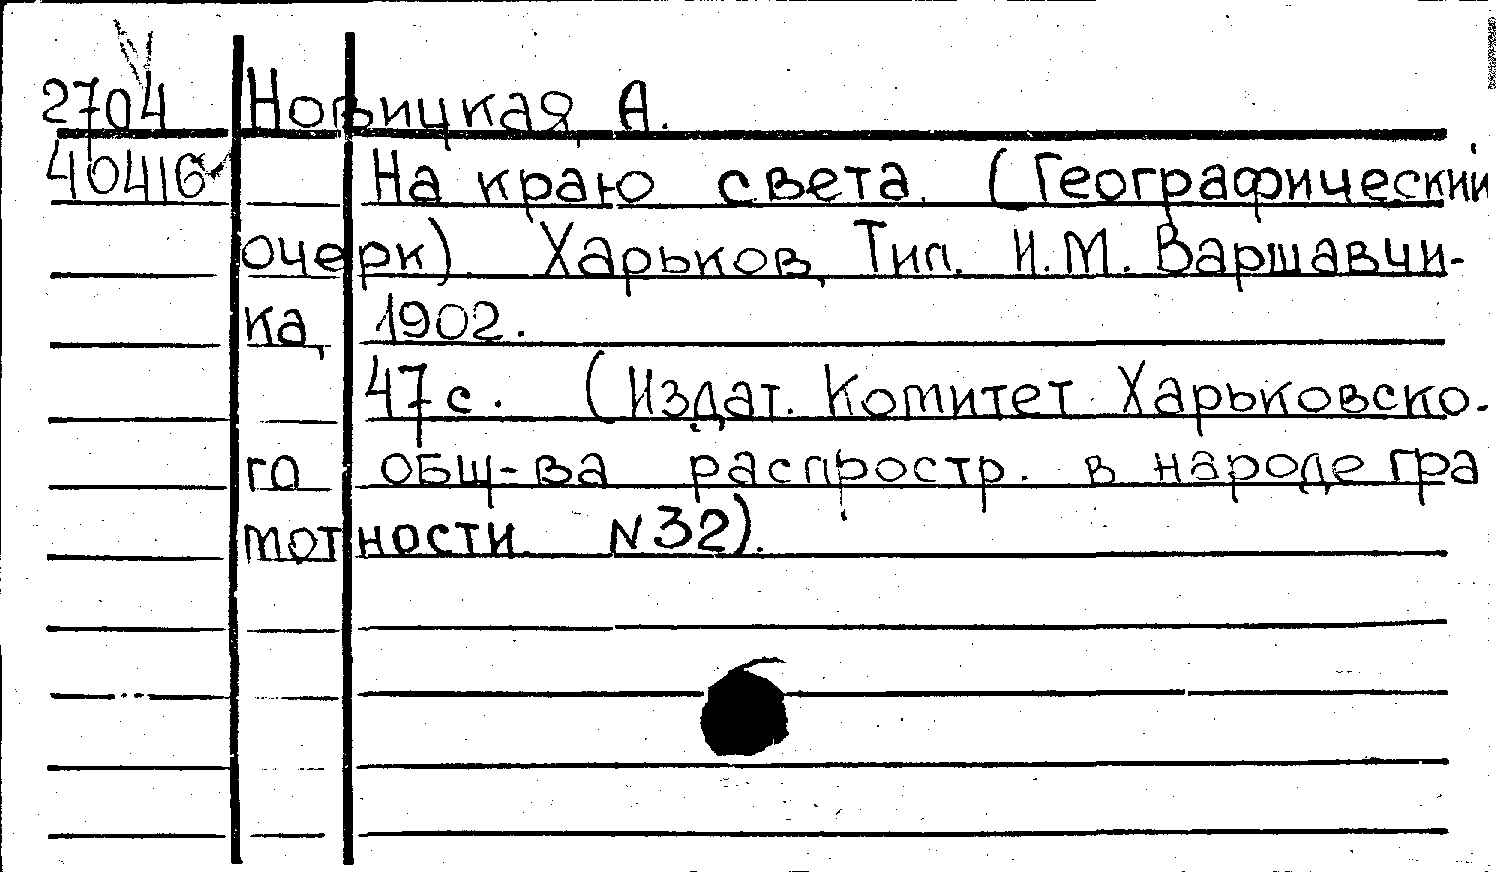 2704 Новицкая А.
40416 На краю света. (Географический
очерк). Харьков, Тип. И.М. Варшавчи-
ка, 1902.
47 с. (Издат. Комитет Харьковско-
го общ-ва распростр. в народе гра
мотности N32).